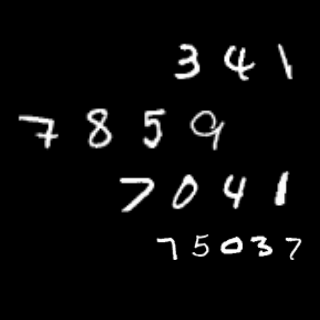 3 4 1
7 8 5 9
7 0 4 1
7 5 0 3 7